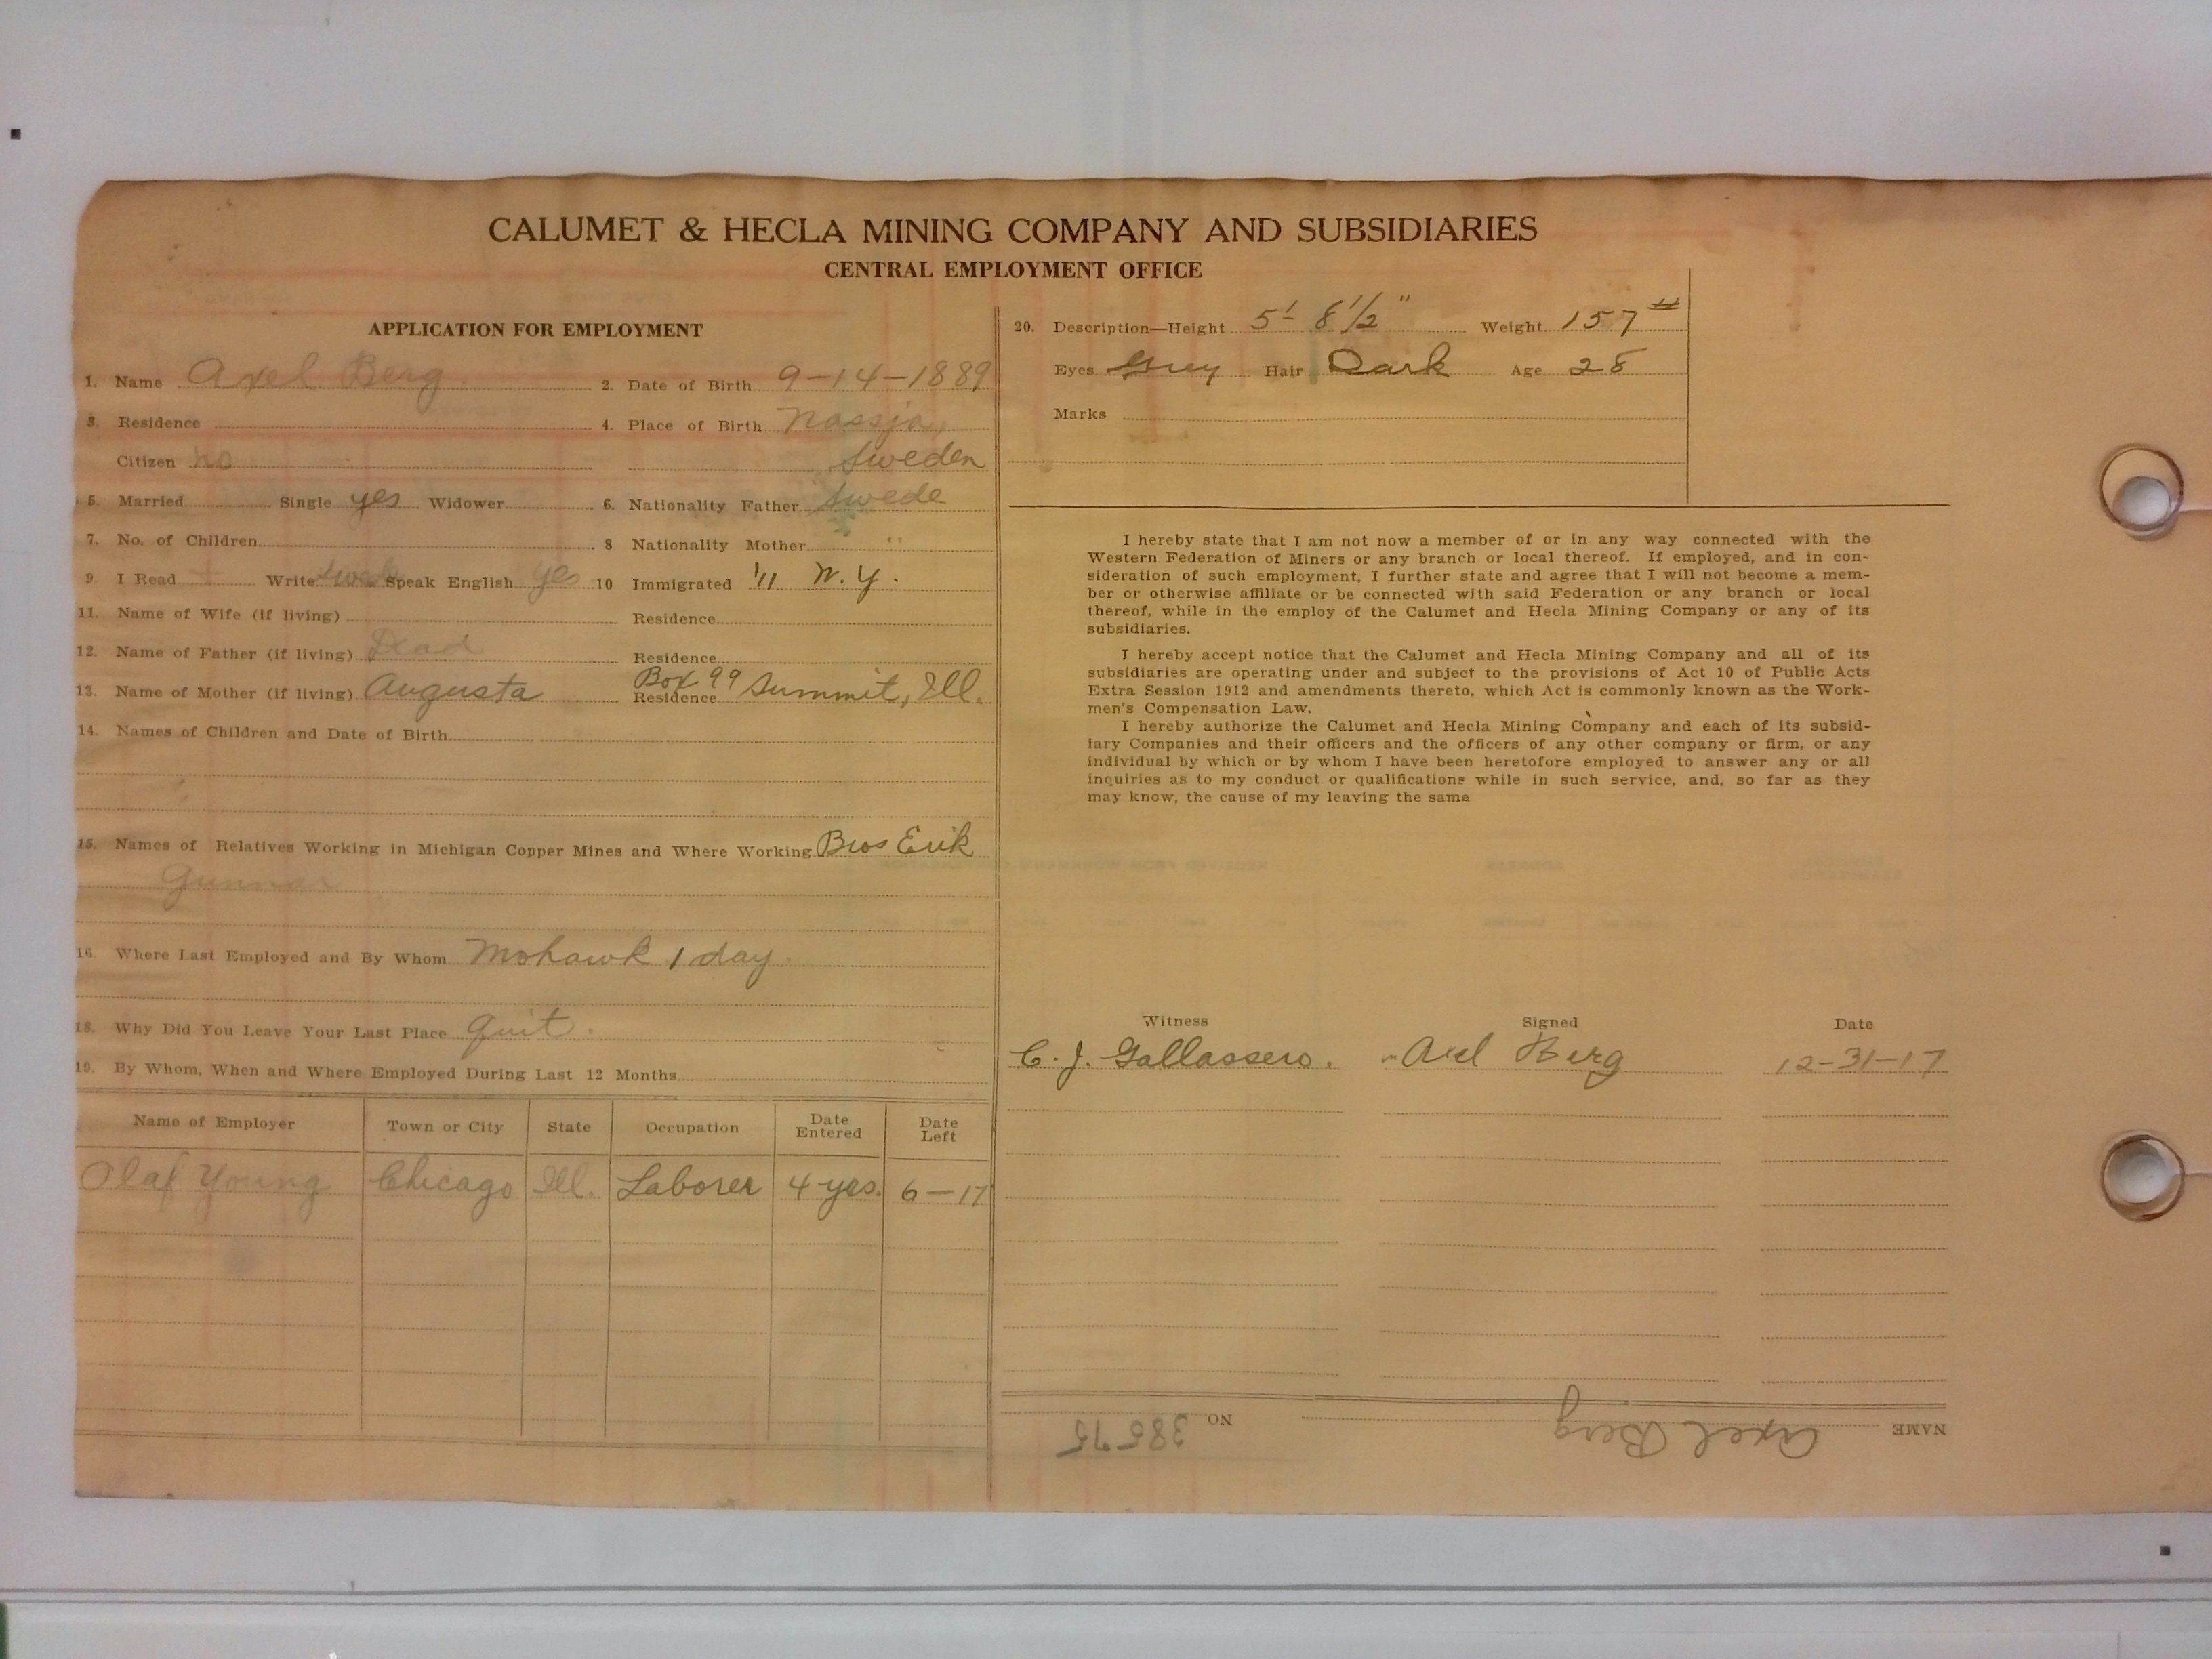 CALUMET & HECLA MINING COMPANY AND SUBSIDIARIES
CENTRAL EMPLOYMENT OFFICE
APPLICATION FOR EMPLOYMENT
1. Name Axel Berg 2. Date of Birth 9-14-1889
3. Residence 4. Place of Birth Nassja,
Citizen no Sweden
5. Married Single yes Widower 6. Nationality Father Swede
7. No. of Children 8 Nationality Mother "
9. I Read Write Swede Speak English yes 10 Immigrated '11 N.Y.
11. Name of Wife (if living) Residence
12. Name of Father (if living) Dead Residence
13. Name of Mother (if living) Augusta Residence Box 99 Summit, Ill.
14. Names of Children and Date of Birth
15. Names of Relatives Working in Michigan Copper Mines and Where Working Bros Erik
Gunnar
16. Where Last Employed and By Whom Mohawk 1 day.
18. Why Did You Leave Your Last Place quit.
19. By Whom, When and Where Employed During Last 12 Months
Name of Employer Town or City State Occupation Date Entered Date Left
Olaf Young Chicago Ill. Laborer 4 yrs. 6-17
20. Description—Height 5' 8 1/2" Weight 157 #
Eyes Grey Hair Dark Age 28
Marks
I hereby state that I am not now a member of or in any way connected with the
Western Federation of Miners or any branch or local thereof. If employed, and in con-
sideration of such employment, I further state and agree that I will not become a mem-
ber or otherwise affiliate or be connected with said Federation or any branch or local
thereof, while in the employ of the Calumet and Hecla Mining Company or any of its
subsidiaries.
I hereby accept notice that the Calumet and Hecla Mining Company and all of its
subsidiaries are operating under and subject to the provisions of Act 10 of Public Acts
Extra Session 1912 and amendments thereto, which Act is commonly known as the Work-
men's Compensation Law.
I hereby authorize the Calumet and Hecla Mining Company and each of its subsid-
iary Companies and their officers and the officers of any other company or firm, or any
individual by which or by whom I have been heretofore employed to answer any or all
inquiries as to my conduct or qualifications while in such service, and, so far as they
may know, the cause of my leaving the same
Witness Signed Date
C. J. Gallassero. Axel Berg 12-31-17
NAME Axel Berg NO. 38575